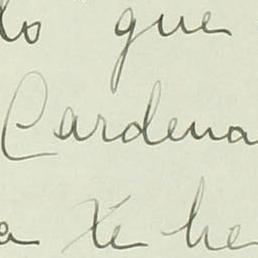 lo que
Cardena
a Xé he